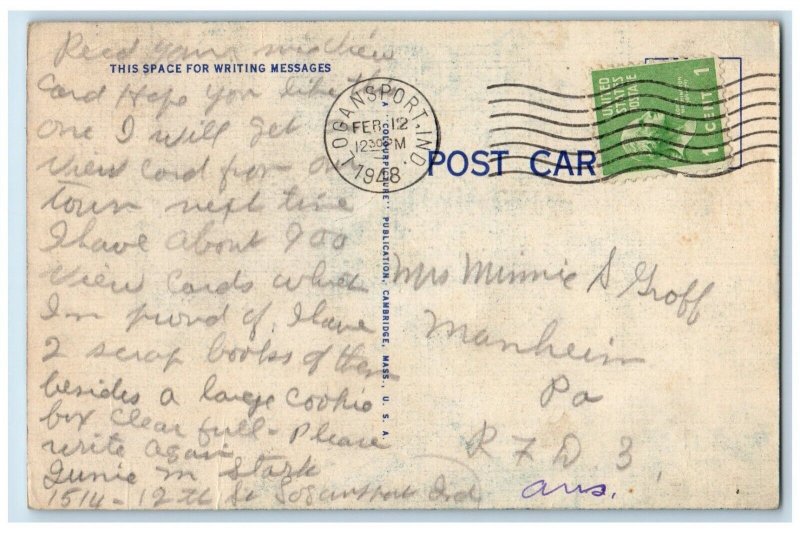 THIS SPACE FOR WRITING MESSAGES
Recd your nice view
card Hope you like this
one I will get
view card from our
town next time
I have about 900
view cards which
I'm proud of. I have
2 scrap books of them
besides a large cookie
box clear full - Please
write again
Junie M Stark
1514 - 12th St Logansport Ind
A "COLOURPICTURE" PUBLICATION, CAMBRIDGE, MASS., U. S. A.
LOGANSPORT, IND.
FEB 12
12 30 PM
1948
UNITED
STATES
POSTAGE
1 CENT 1
POST CAR
Mrs Minnie S Groff
Manheim
Pa
R F D 3,
ans.